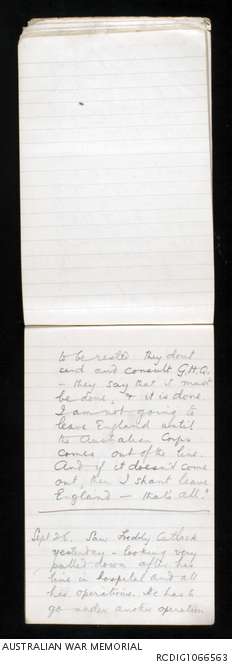 to be rested they dont
send and consult G.H.Q.
- they say that it must
be done, & it is done.
I am not going to
leave England until
the Australian Corps
comes out of the line.
And if it doesn't come
out, then I shant leave
England - that's all."
Sept 26. Saw Freddy Cutlack
yesterday - looking very
pulled down after his
time in hospital and all
his operations. He has to
go under another operation
AUSTRALIAN WAR MEMORIAL
RCDIG1066563